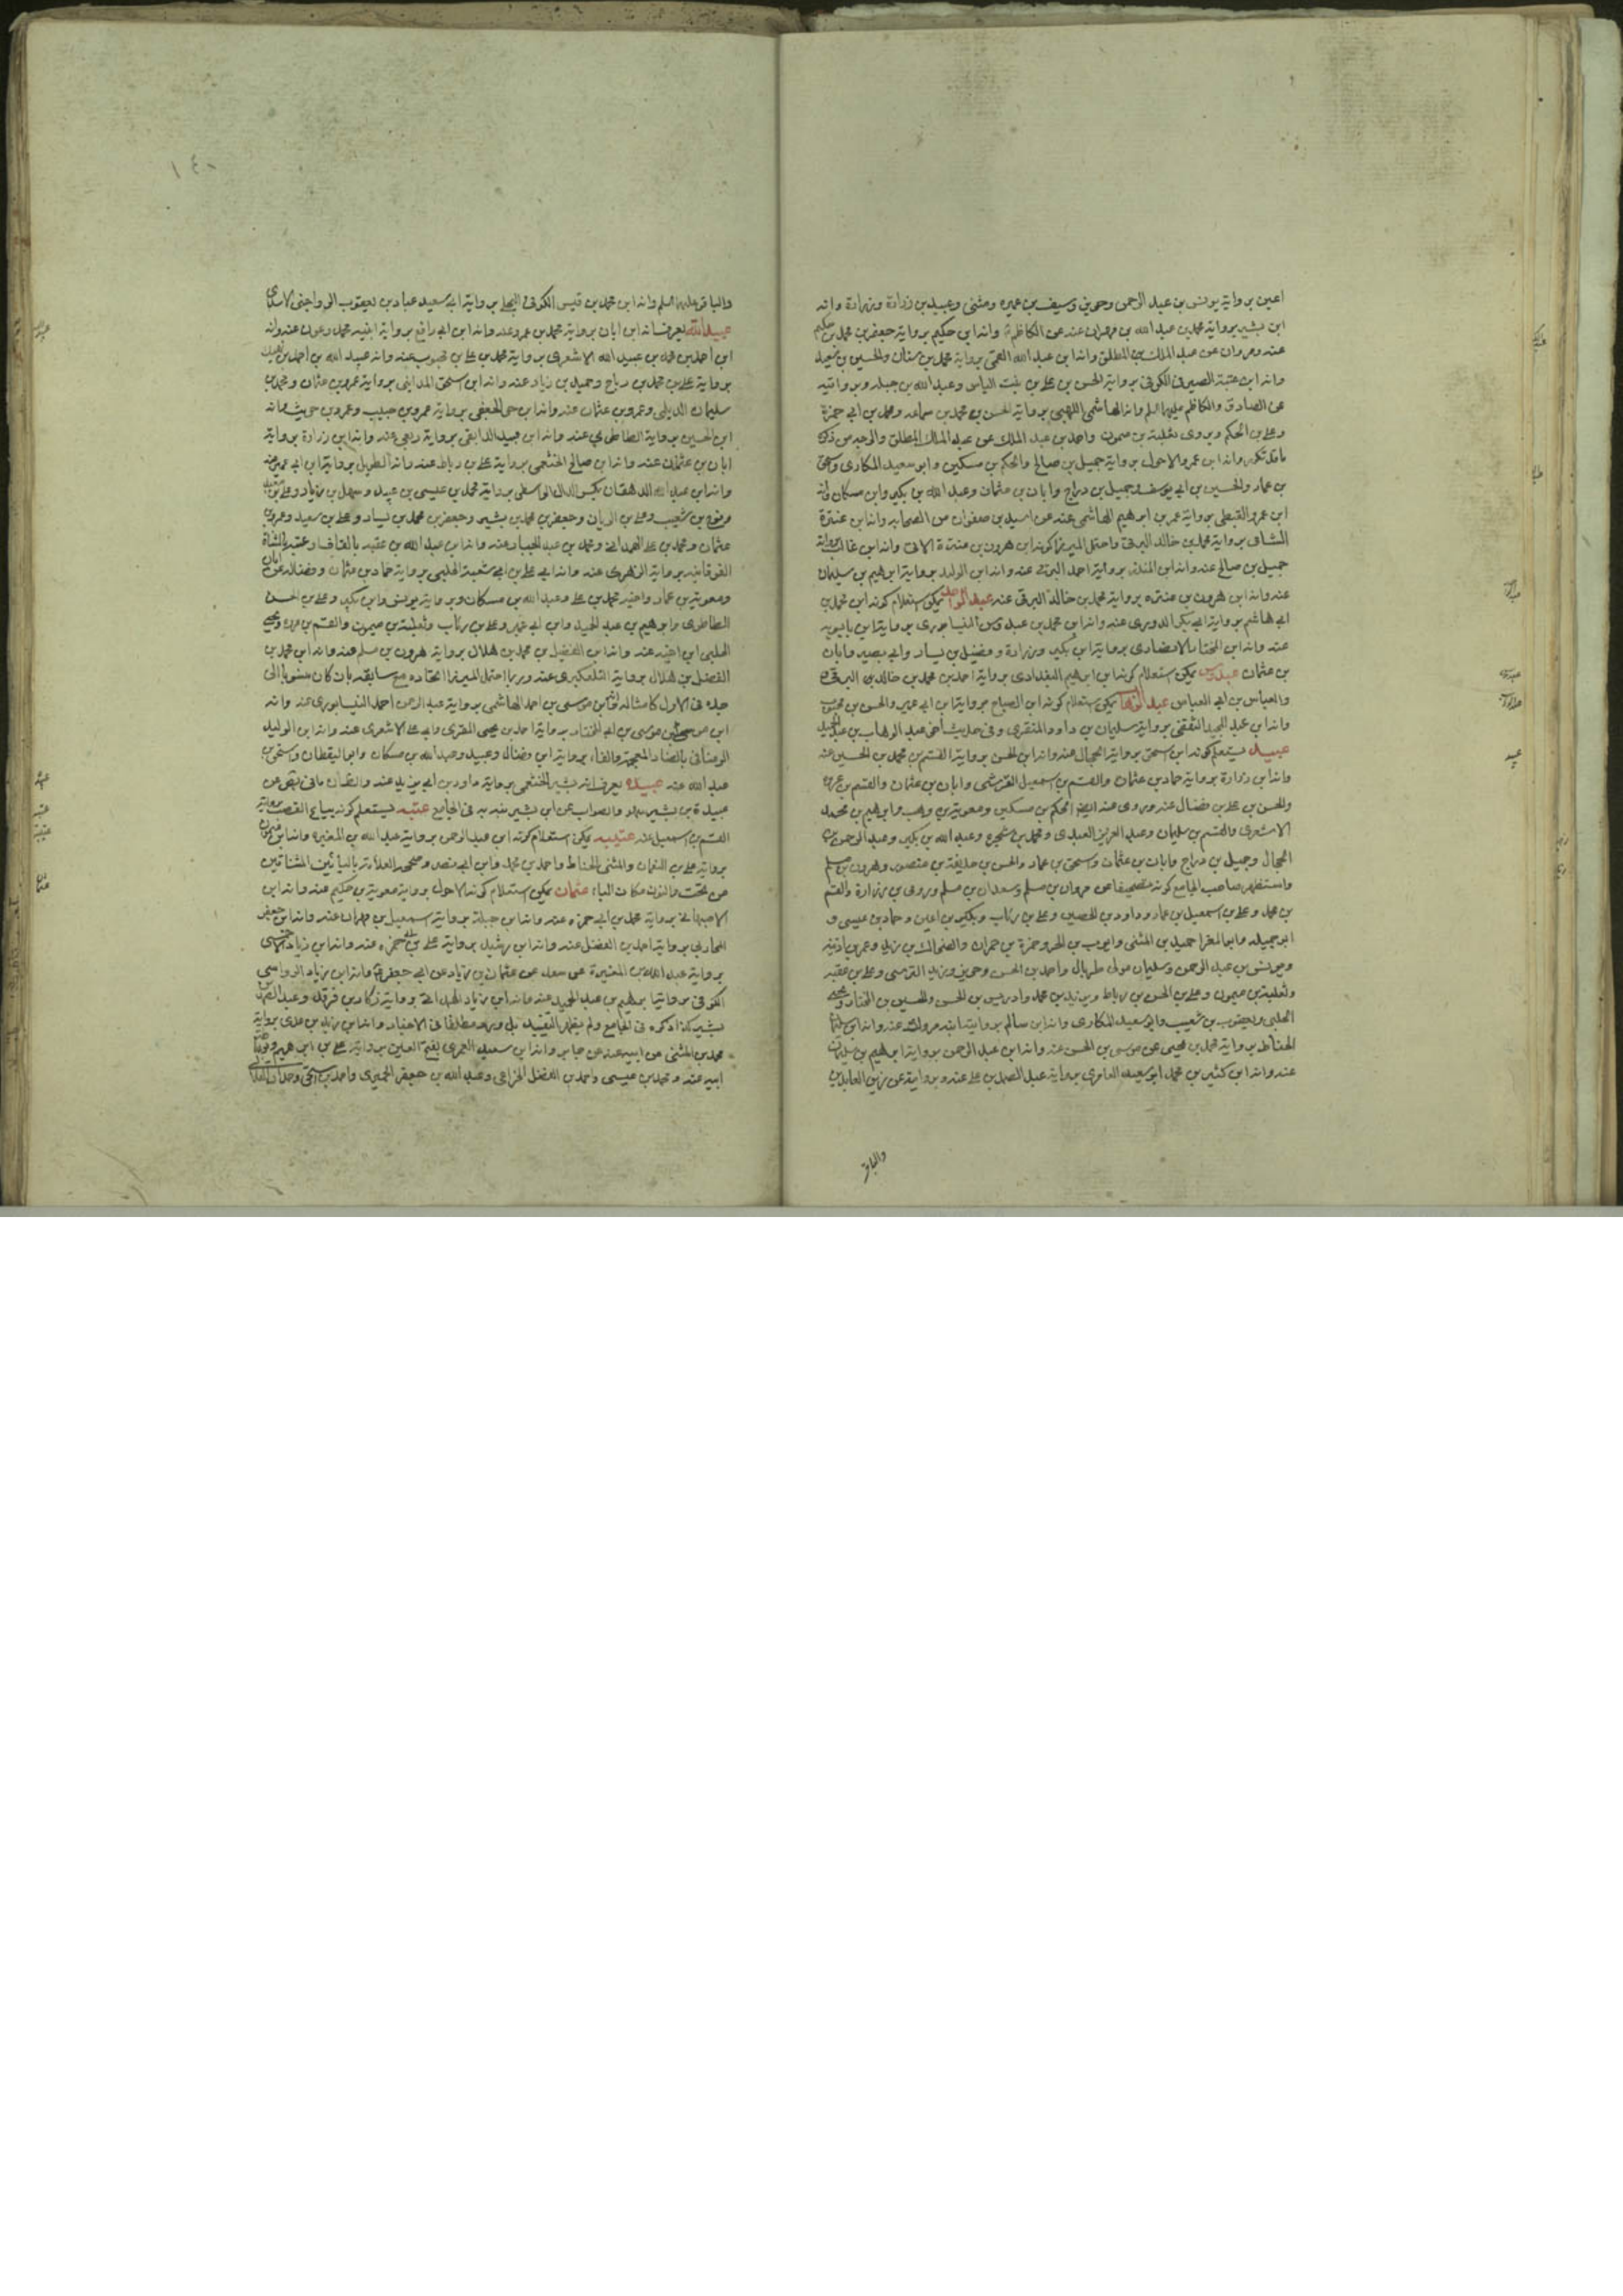 اعين برواية يونس بن عبد الرحمن وحريز وسيف بن عميره ومثنى وعبيد بن زرارة وزرارة وانه
ابن بشير برواية محمد بن عبد الله بن مهران عنه عن الكاظم وانه ابن حكيم برواية جعفر بن محمد بن حكيم
عنه ومروان عن عبد الملك بن المطلق وانه ابن عبد الله القمي برواية محمد بن سنان والحسين بن سعيد
وانه ابن عتبة الصيرفى الكوفى برواية الحسن بن على بن بنت الياس وعبد الله بن جبله وبروايته
عن الصادق والكاظم عليهما السلم وانه الهاشمى اللهبى برواية الحسن بن محمد بن سماعه ومحمد بن ابى حمزة
وعلى بن الحكم ويروى ثعلبة بن ميمون واحمد بن عبد الملك عن عبد الملك المطلق والوجه من ذلك
ما قد تكرر وانه ابن عمرو الاحول برواية جميل بن صالح والحكم بن مسكين وابو سعيد المكارى واسحق
بن عمار والحسين بن ابى يوسف وجميل بن دراج وابان بن عثمان وعبد الله بن بكير وابن مسكان وانه
ابن عمرو القبطى برواية عمر بن ابرهيم الهاشمى عنه عن اسيد بن صفوان من الصحابه وانه ابن عنترة
الشامى برواية محمد بن خالد البرقى واحتمل الميرزا كونه ابن هرون بن عنترة الاتى وانه ابن غالب برواية
جميل بن صالح عنه وانه ابن المنذر برواية احمد البرقى عنه وانه ابن الوليد برواية ابرهيم بن سليمان
عنه وانه ابن هرون بن عنتره برواية محمد بن خالد البرقى عنه عبد الواحد يمكن استعلام كونه ابن محمد بن
عنه وانه ابن المختار الانصارى برواية ابن بكير وزرارة وفضيل بن يسار وابى بصير وابان
بن عثمان عبدوس يمكن استعلام كونه ابن ابرهيم البغدادى برواية احمد بن محمد بن خالد بن البرقى
والعباس بن ابى العباس عبد الوهاب يمكن استعلام كونه ابن الصباح برواية ابن ابى عمير والحسن بن محبوب
وانه ابن عبد المجيد الثقفى برواية سليمان بن داود المنقرى وفى حديث اخى عبد الوهاب بن عبد المجيد
عبيد يستعلم كونه ابن اسحق برواية الجمال عنه وانه ابن الحسن برواية القسم بن محمد بن الحسين عنه
وانه ابن زرارة برواية حماد بن عثمان والقسم بن اسمعيل القرشى وابان بن عثمان والقسم بن عروة
والحسن بن على بن فضال عنه وروى عنه ايضا الحكم بن مسكين ومعوية بن وهب وابرهيم بن محمد
الاشعرى والقسم بن سليمان وعبد العزيز العبدى ومحمد بن شجرة وعبد الله بن بكير وعبد الرحمن بن
الحجاج وجميل بن دراج وابان بن عثمان واسحق بن عمار والحسن بن حذيفة بن منصور وهرون بن مسلم
واستظهر صاحب الجامع كونه تصحيفا عن مروان بن مسلم وسعدان بن مسلم وروى بن زرارة والقسم
بن محمد وعلى بن اسمعيل بن عمار وداود بن الحصين وعلى بن رئاب وبكير بن اعين وحماد بن عيسى و
ابو جميله وابو المغرا حميد بن المثنى وايوب بن الحر وحمزة بن حمران والضحاك بن زيد وعمر بن اذينه
ويونس بن عبد الرحمن وسليمان مولى طربال واحمد بن الحسن وحريز ويزيد القرشى وعلى بن عقبه
وثعلبة بن ميمون وعلى بن الحسن بن رباط وبريد بن محمد وادريس بن الحسن والحسين بن المختار ويحيى
الحلبى ويعقوب بن شعيب وابو سعيد المكارى وانه ابن سالم برواية ابنه مروك عنه وانه ابن
الحناط برواية محمد بن يحيى عن موسى بن الحسن عنه وانه ابن عبد الرحمن برواية ابرهيم بن سليمان
عنه وانه ابن كثير بن محمد ابو سعيد العامرى برواية عبد الصمد بن على عنه وبروايته عن زين العابدين
والباقر
١٤٠
والباقر عليهما السلم وانه ابن محمد بن قيس الكوفى البجلى برواية ابى سعيد عباد بن يعقوب الرواجنى الاسدى
عبيد الله يعرف انه ابن ابان برواية محمد بن عمرو عنه وانه ابن ابى رافع برواية ابنيه محمد وعون عنه وانه
برواية على بن محمد بن رباح وحميد بن زياد عنه وانه ابن اسحق المداينى برواية عمرو بن عثمان ومحمد بن
سليمان الديلمى وعمرو بن عثمان عنه وانه ابن حر الجعفى برواية عمرو بن حبيب وعمرو بن حريث وانه
ابن الحسين برواية الطاطرى عنه وانه ابن عبيد الدابقى برواية ربعى عنه وانه ابن زرارة برواية
ابان بن عثمان عنه وانه ابن صالح الخثعمى برواية على بن رباط عنه وانه الطويل برواية ابن ابى عمير عنه
وانه ابن عبد الله الدهقان بكسر الدال الواسطى برواية محمد بن عيسى بن عبيد وسهل بن زياد
ونوح بن شعيب وعلى بن الريان وجعفر بن محمد بن بشير وجعفر بن محمد بن يسار وعلى بن سعيد وعمرو بن
عثمان ومحمد بن على الهمدانى ومحمد بن عبد الجبار عنه وانه ابن عبد الله بن عقبه بالقاف او عتبه بالمثناة
الفوقانيه برواية الزهرى عنه وانه ابى على بن ابى شعبة الحلبى برواية حماد بن عثمان وفضاله عن ابان
ومعوية بن عمار واخيه محمد بن على وعبد الله بن مسكان وبرواية يونس وابن بكير وعلى بن الحسن
الطاطرى وابرهيم بن عبد الحميد وابن ابى عمير وعلى بن رئاب وثعلبة بن ميمون والقسم بن عروه ويحيى
الحلبى ابن اخيه عنه وانه ابن الفضيل بن محمد بن هلال برواية هرون بن مسلم عنه وانه ابن محمد بن
الفضل بن هلال برواية التلعكبرى عنه وربما احتمل الميرزا اتحاده مع سابقه بان كان منسوبا الى
جده فى الاول كامثاله وانه ابن موسى بن احمد الهاشمى برواية عبد الرحمن احمد النيسابورى عنه وانه
ابن موسى بن موسى بن ابى المختار برواية احمد بن يحيى المقرى وابى على الاشعرى عنه وانه ابن الوليد
الوصافى بالصاد المعجمة والفاء برواية ابن فضال وعبيد وعبد الله بن مسكان وابو اليقطان واسحق بن
عبد الله عنه عبيده يعرف انه بشير الخثعمى برواية داود بن ابى يزيد عنه
عبيدة بن بشير والصواب عن ابى بشير عتبه يستعلم كونه بياع القصب برواية
القسم بن اسمعيل عنه عتيبه يمكن استعلام كونه ابن عبد الرحمن برواية عبد الله بن المغيره وانه ابن ميمون
برواية على بن النعمان والمثنى الحناط واحمد بن محمد وابن ابى نصر وصحح العلامة بالياءين المثناتين
من تحت والنون مكان الباء عثمان يمكن استعلام كونه الاحول برواية معوية بن حكيم عنه وانه ابن
الاصبهانى برواية محمد بن ابى حمزه عنه وانه ابن جبلة برواية اسمعيل بن مهران عنه وانه ابن جعفر
المحاربى برواية احمد بن الفضل عنه وانه ابن رشيد برواية على بن ابى حمزه عنه وانه ابن زياد
برواية عبد الله بن المغيرة عن سعد عن عثمان بن زياد عن ابى جعفر وانه ابن زياد الرواسى
بشير كذا ذكره فى الجامع ولم يظهر التقييد بل ورد مطلقا فى الاخبار وانه ابن زيد بن عدى برواية
محمد بن المثنى عن ابيه عنه عن جابر وانه ابن سعيد العمرى بفتح العين برواية على بن ابرهيم
ابيه عنه ومحمد بن عيسى واحمد بن الفضل الخزاعى وعبد الله بن جعفر الحميرى واحمد بن اسحق